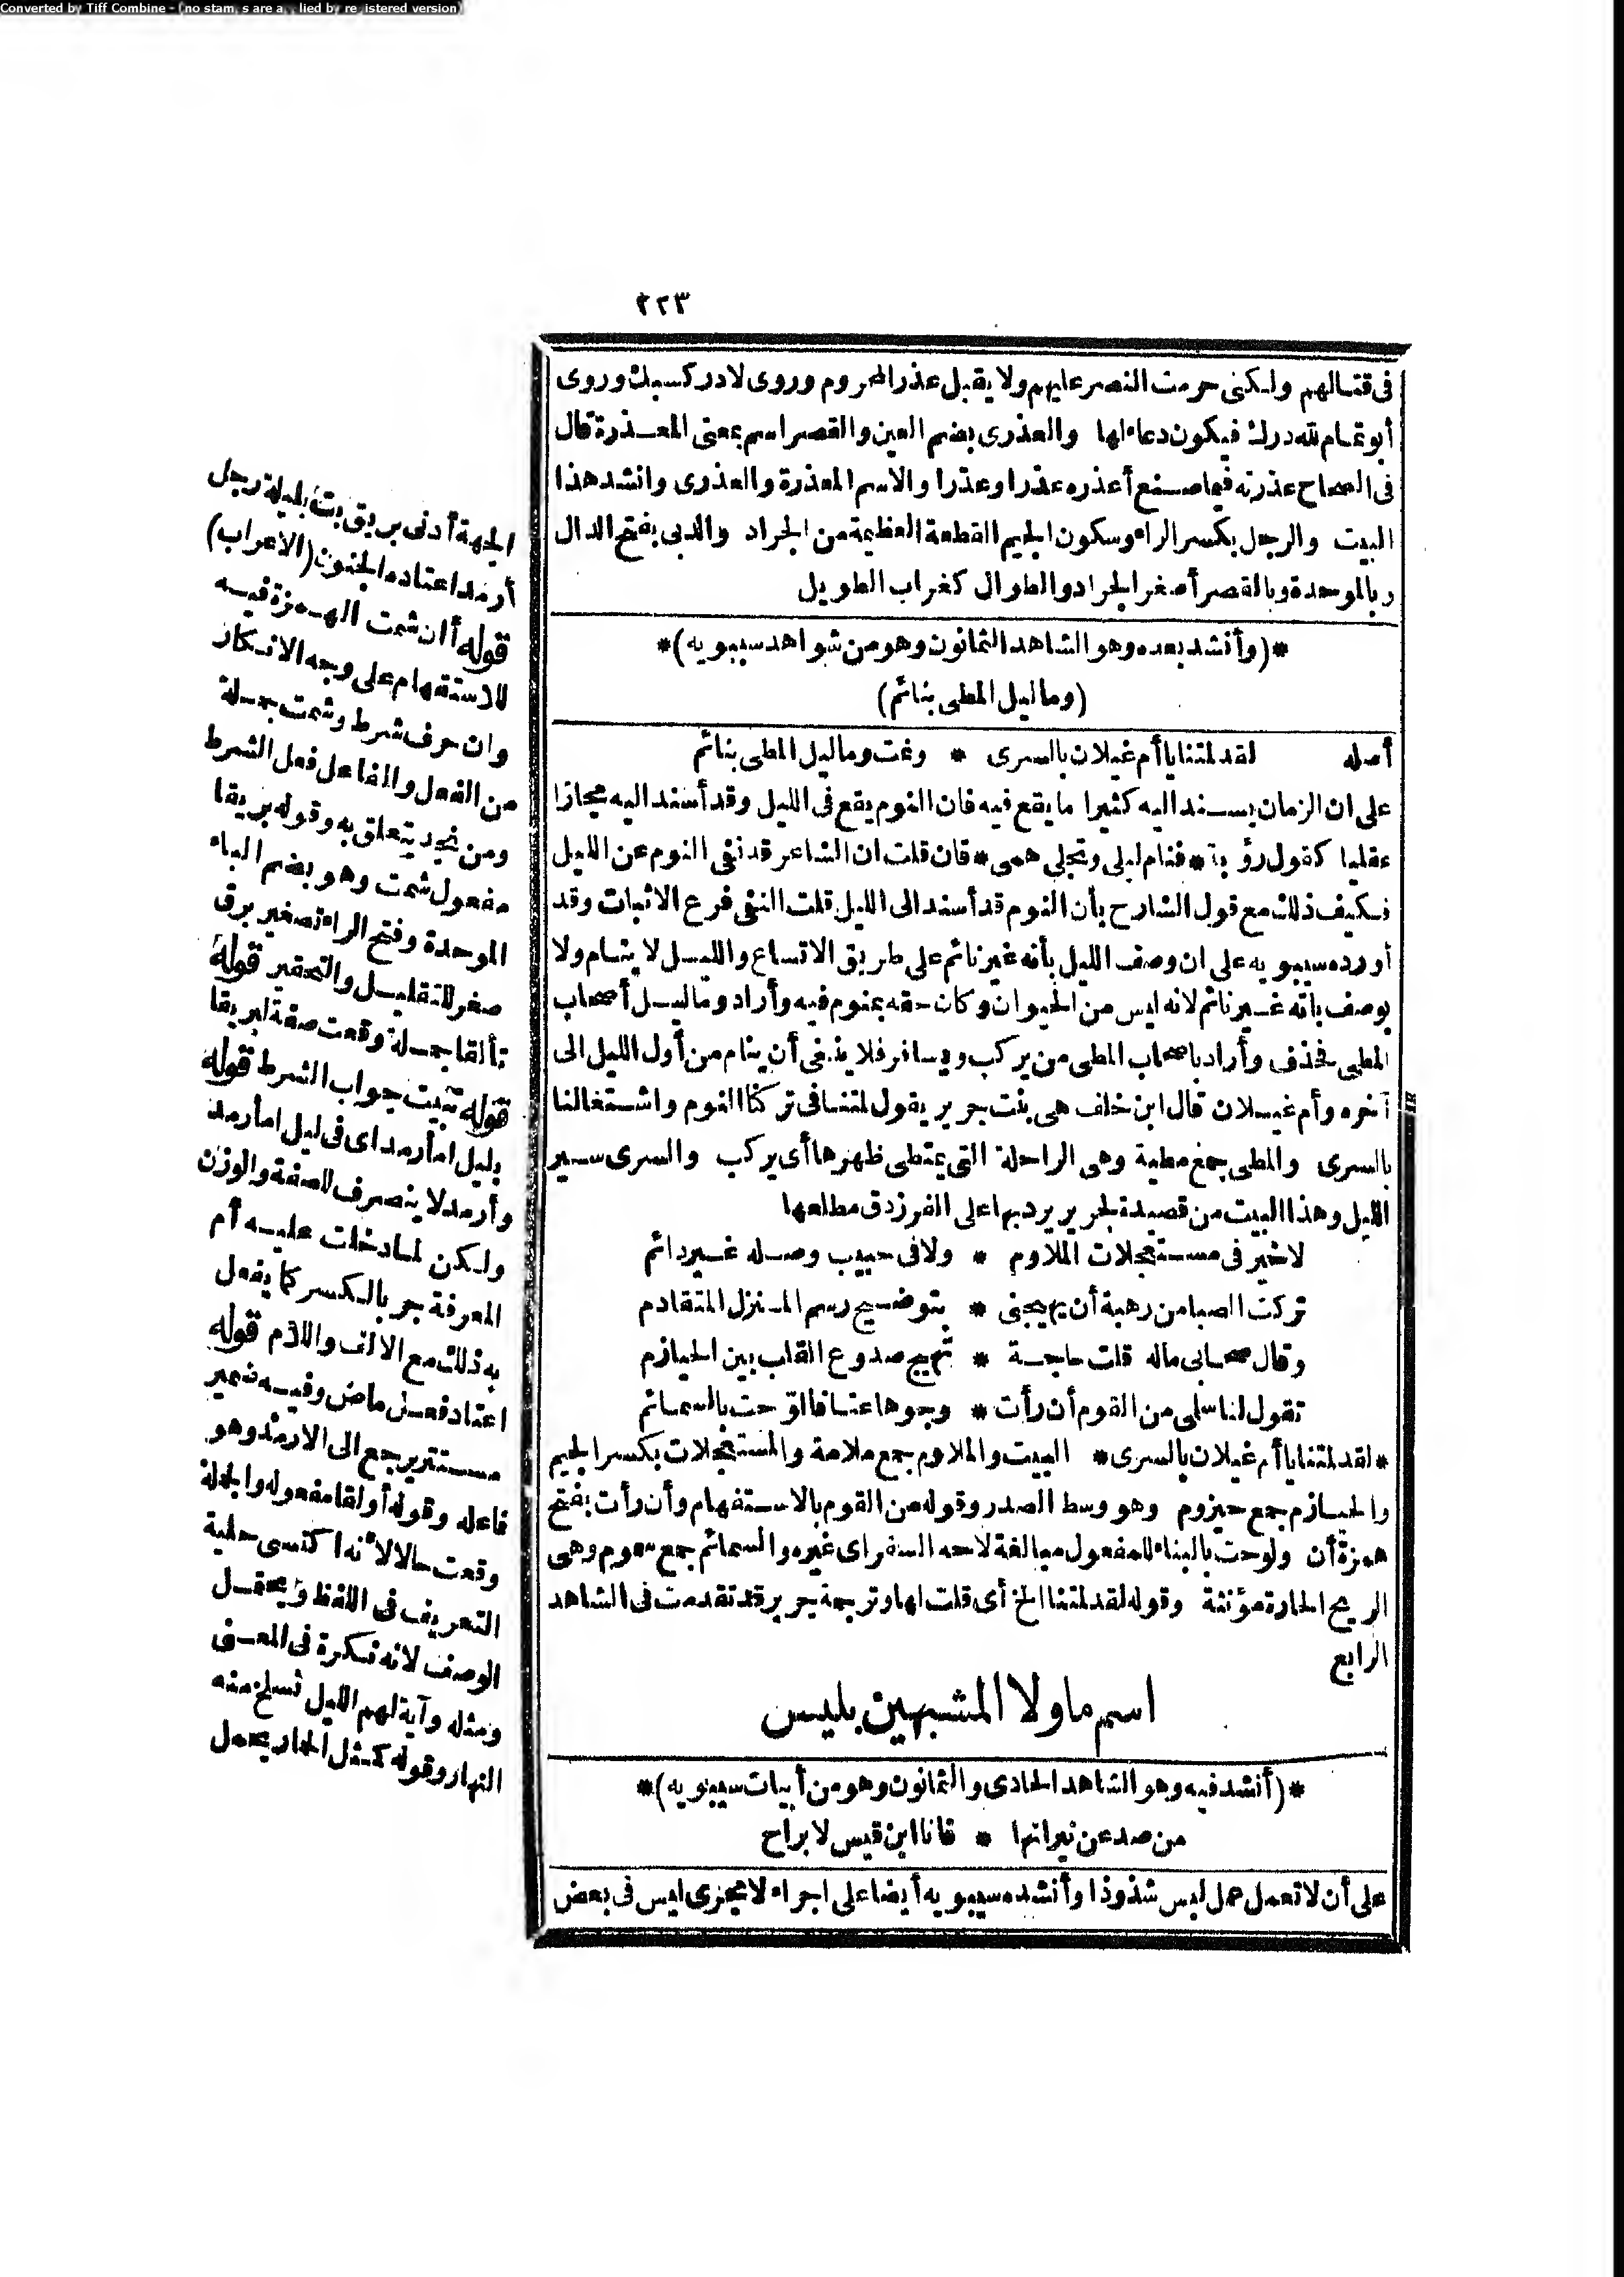 Converted by Tiff Combine - (no stamps are applied by registered version)
٢٢٣
فى قتالهم ولكنى حرمت النصر عليهم ولا يقبل عذر المحروم وروى لا در كسبك وروى
أبو تمام لله درك فيكون دعاء لها والعذرى بضم العين والقصر اسم بمعنى المعذرة قال
فى الصحاح عذرته فيما صنع أعذره عذرا وعذرا والاسم المعذرة والعذرى وانشد هذا
البيت والرجل بكسر الراء وسكون الجيم القطعة العظيمة من الجراد والدبى بفتح الدال
وبالموحدة وبالقصر أصغر الجراد والطوال كغراب الطويل
*(وأنشد بعده وهو الشاهد الثمانون وهو من شواهد سيبويه)*
(وما ليل المطى بنائم)
أصله لقد لمتنا يا أم غيلان بالسرى * ونمت وما ليل المطى بنائم
على ان الزمان يسند اليه كثيرا ما يقع فيه فان النوم يقع فى الليل وقد أسند اليه مجازا
عقليا كقول رؤبة *فنام ليلى وتجلى همى* فان قلت ان الشاعر قد نفى النوم عن الليل
فكيف ذلك مع قول الشارح بأن النوم قد أسند الى الليل قلت النفى فرع الاثبات وقد
أورده سيبويه على ان وصف الليل بأنه غير نائم على طريق الاتساع والليل لا ينام ولا
يوصف بأنه غير نائم لانه ليس من الحيوان وكان حقه بمنوم فيه وأراد وما ليل أصحاب
المطى فحذف وأراد باصحاب المطى من يركب ويسافر فلا ينبغى أن ينام من أول الليل الى
آخره وأم غيلان قال ابن خلف هى بنت جرير يقول لمتنا فى تركنا النوم واشتغالنا
بالسرى والمطى جمع مطية وهى الراحلة التى يمتطى ظهرها أى يركب والسرى سير
الليل وهذا البيت من قصيدة لجرير يرد بها على الفرزدق مطلعها
لا خير فى مستعجلات الملاوم * ولا فى حبيب وصله غير دائم
تركت الصبا من رهبة أن يهيجنى * بتوضيح رسم المنزل المتقادم
وقال صحابى ماله قلت حاجة * تهيج صدوع القلب بين الحيازم
تقول لنا سلمى من القوم أن رأت * وجوها عتاقا لوحت بالسمائم
*لقد لمتنا يا أم غيلان بالسرى* البيت والملاوم جمع ملامة والمستعجلات بكسر الجيم
والحيازم جمع حيزوم وهو وسط الصدر وقوله من القوم بالاستفهام وأن رأت بفتح
همزة أن ولوحت بالبناء للمفعول مبالغة لاحه السفر اى غيره والسمائم جمع سموم وهى
الريح الحارة مؤنثة وقوله لقد لمتنا الخ أى قلت لها وترجمة جرير قد تقدمت فى الشاهد
الرابع
اسم ما ولا المشبهين بليس
*(أنشد فيه وهو الشاهد الحادى والثمانون وهو من أبيات سيبويه)*
من صد عن نيرانها * فانا ابن قيس لا براح
على أن لا تعمل عمل ليس شذوذا وأنشده سيبويه أيضا على اجراء لا مجرى ليس فى بعض
الجهة أدنى بريق بت بليلة رجل
أرمد اعتاده الجنون (الاعراب)
قوله أان شمت الهمزة فيه
للاستفهام على وجه الانكار
وان حرف شرط وشمت جملة
من الفعل والفاعل فعل الشرط
ومن نجد يتعلق به وقوله بريقا
مفعول شمت وهو بضم الباء
الموحدة وفتح الراء تصغير برق
صغر للتقليل والتحقير قوله
تألقا جملة وقعت صفة لبريقا
قوله تبيت جواب الشرط قوله
بليل امأرمد اى فى ليل امأرمد
وأرمد لا ينصرف للصفة والوزن
ولكن لما دخلت عليه أم
المعرفة جر بالكسر كما يفعل
به ذلك مع الالف واللام قوله
اعتاد فعل ماض وفيه ضمير
مستتر يرجع الى الارمد وهو
فاعله وقوله أولقا مفعوله والجملة
وقعت حالا لأنه اكتسى حلية
التعريف فى اللفظ ويحتمل
الوصف لانه نكرة فى المعنى
ومثله وآية لهم الليل نسلخ منه
النهار وقوله كمثل الحمار يحمل